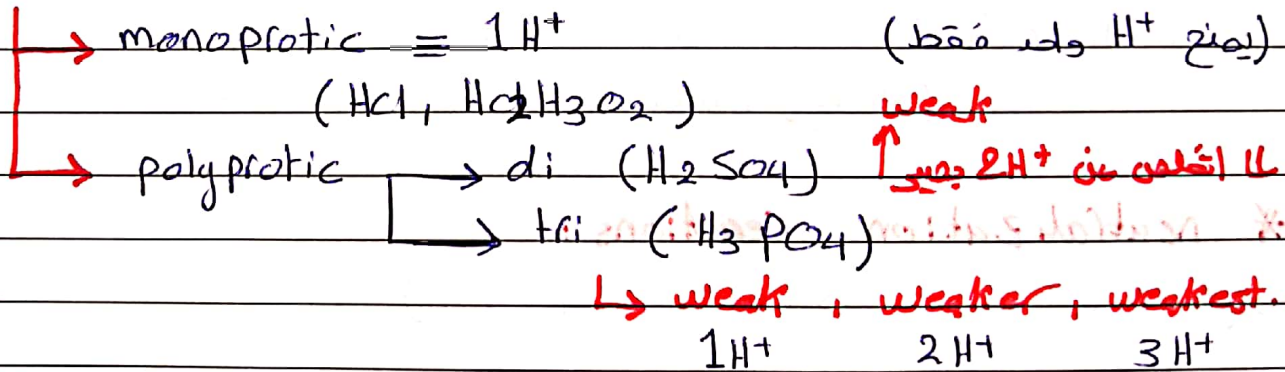 → monoprotic ≡ 1H⁺ (يمنح H⁺ واحد فقط)
(HCl, HC2H3O2)
weak
→ polyprotic → di (H2SO4) ↑ لما اتخلص من 2H⁺ بصير
→ tri (H3PO4)
↳ weak, weaker, weakest.
1H⁺ 2H⁺ 3H⁺